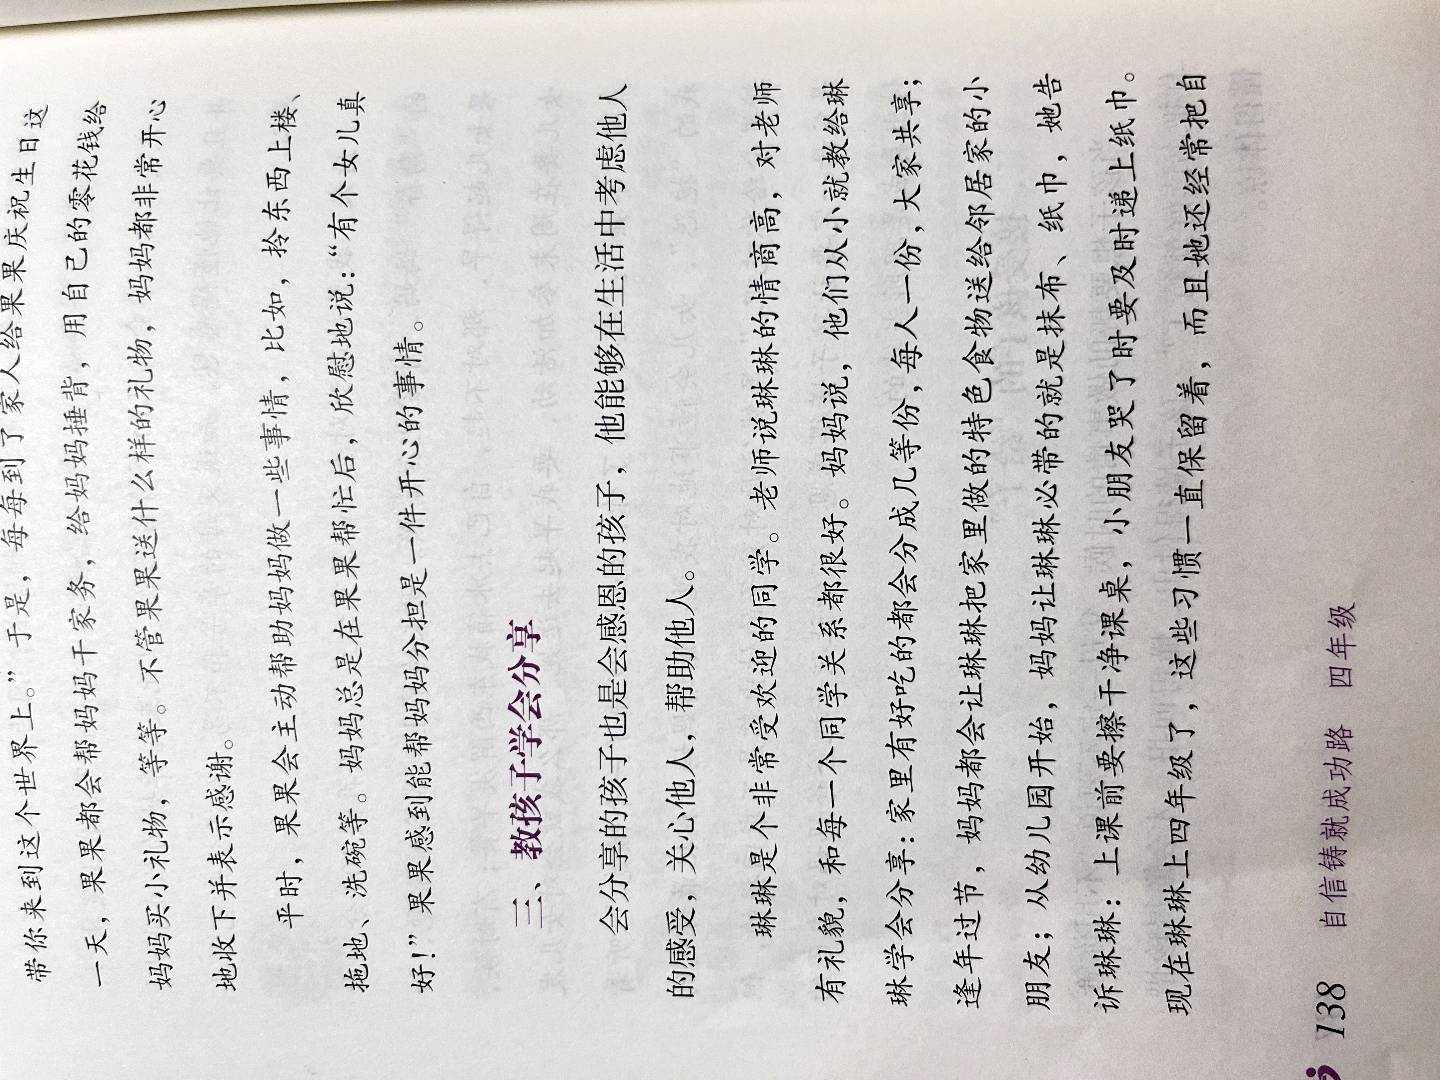 带你来到这个世界上。”于是，每每到了家人给果果庆祝生日这
一天，果果都会帮妈妈干家务，给妈妈捶背，用自己的零花钱给
妈妈买小礼物，等等。不管果果送什么样的礼物，妈妈都非常开心
地收下并表示感谢。
平时，果果会主动帮助妈妈做一些事情，比如，拎东西上楼、
拖地、洗碗等。妈妈总是在果果帮忙后，欣慰地说：“有个女儿真
好！”果果感到能帮妈妈分担是一件开心的事情。
三、教孩子学会分享
会分享的孩子也是会感恩的孩子，他能够在生活中考虑他人
的感受，关心他人，帮助他人。
琳琳是个非常受欢迎的同学。老师说琳琳的情商高，对老师
有礼貌，和每一个同学关系都很好。妈妈说，他们从小就教给琳
琳学会分享：家里有好吃的都会分成几等份，每人一份，大家共享；
逢年过节，妈妈都会让琳琳把家里做的特色食物送给邻居家的小
朋友；从幼儿园开始，妈妈让琳琳必带的就是抹布、纸巾，她告
诉琳琳：上课前要擦干净课桌，小朋友哭了时要及时递上纸巾。
现在琳琳上四年级了，这些习惯一直保留着，而且她还经常把自
138 自信铸就成功路 四年级